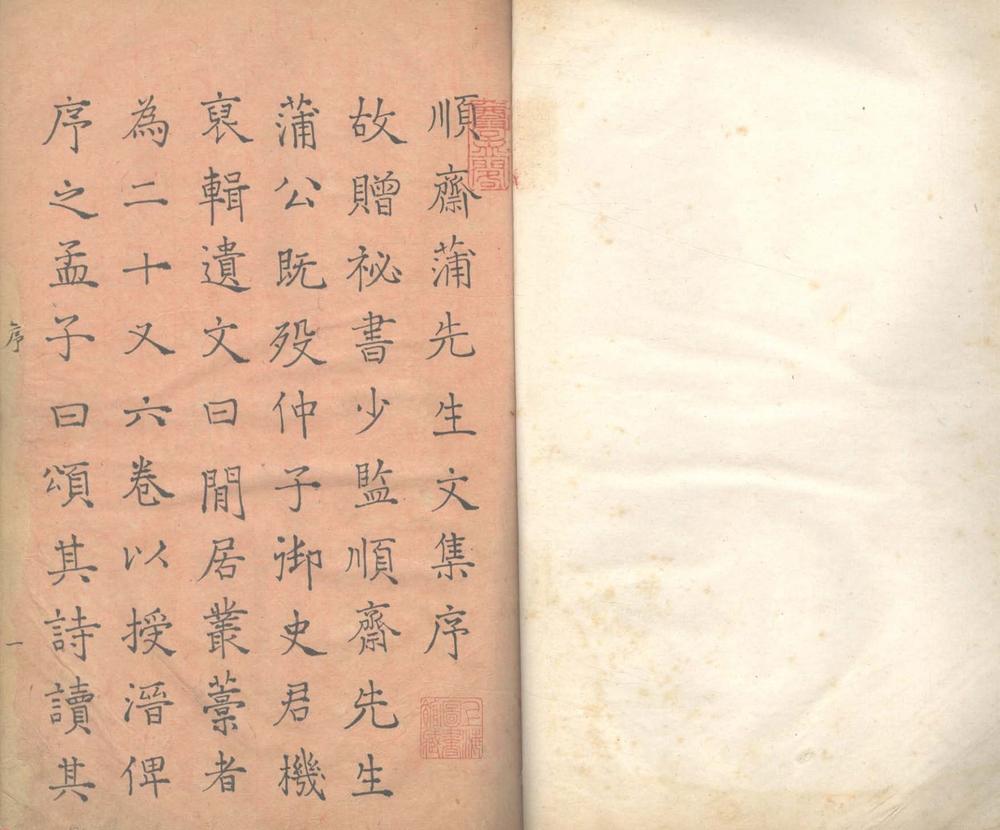 順齋蒲先生文集序
故贈祕書少監順齋先生
蒲公既歿仲子御史君機
裒輯遺文曰閒居叢藁者
為二十又六卷以授溍俾
序之孟子曰頌其詩讀其
序
一